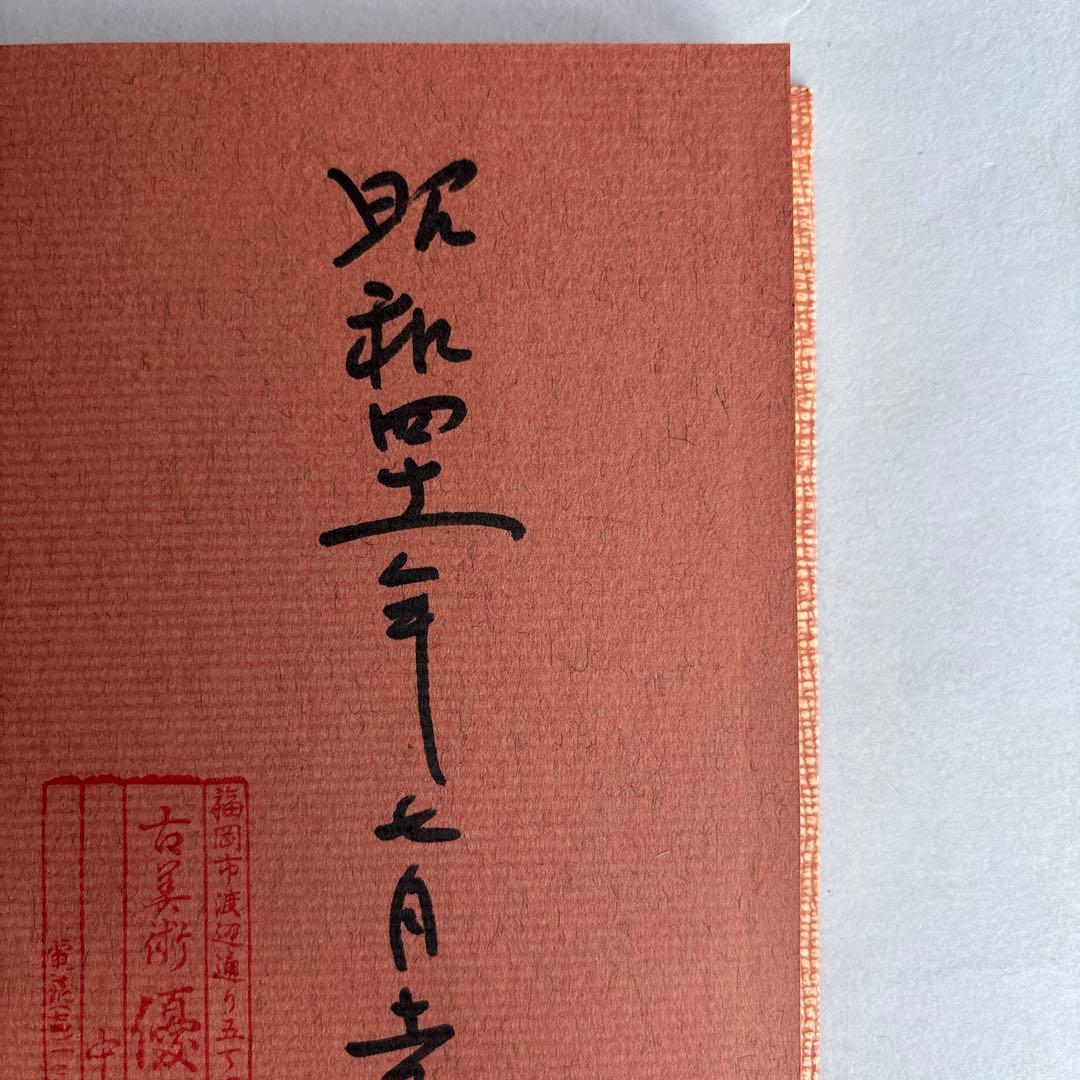 昭和四十一年七月吉
福岡市渡辺通り五丁
古美術 優
中
電話